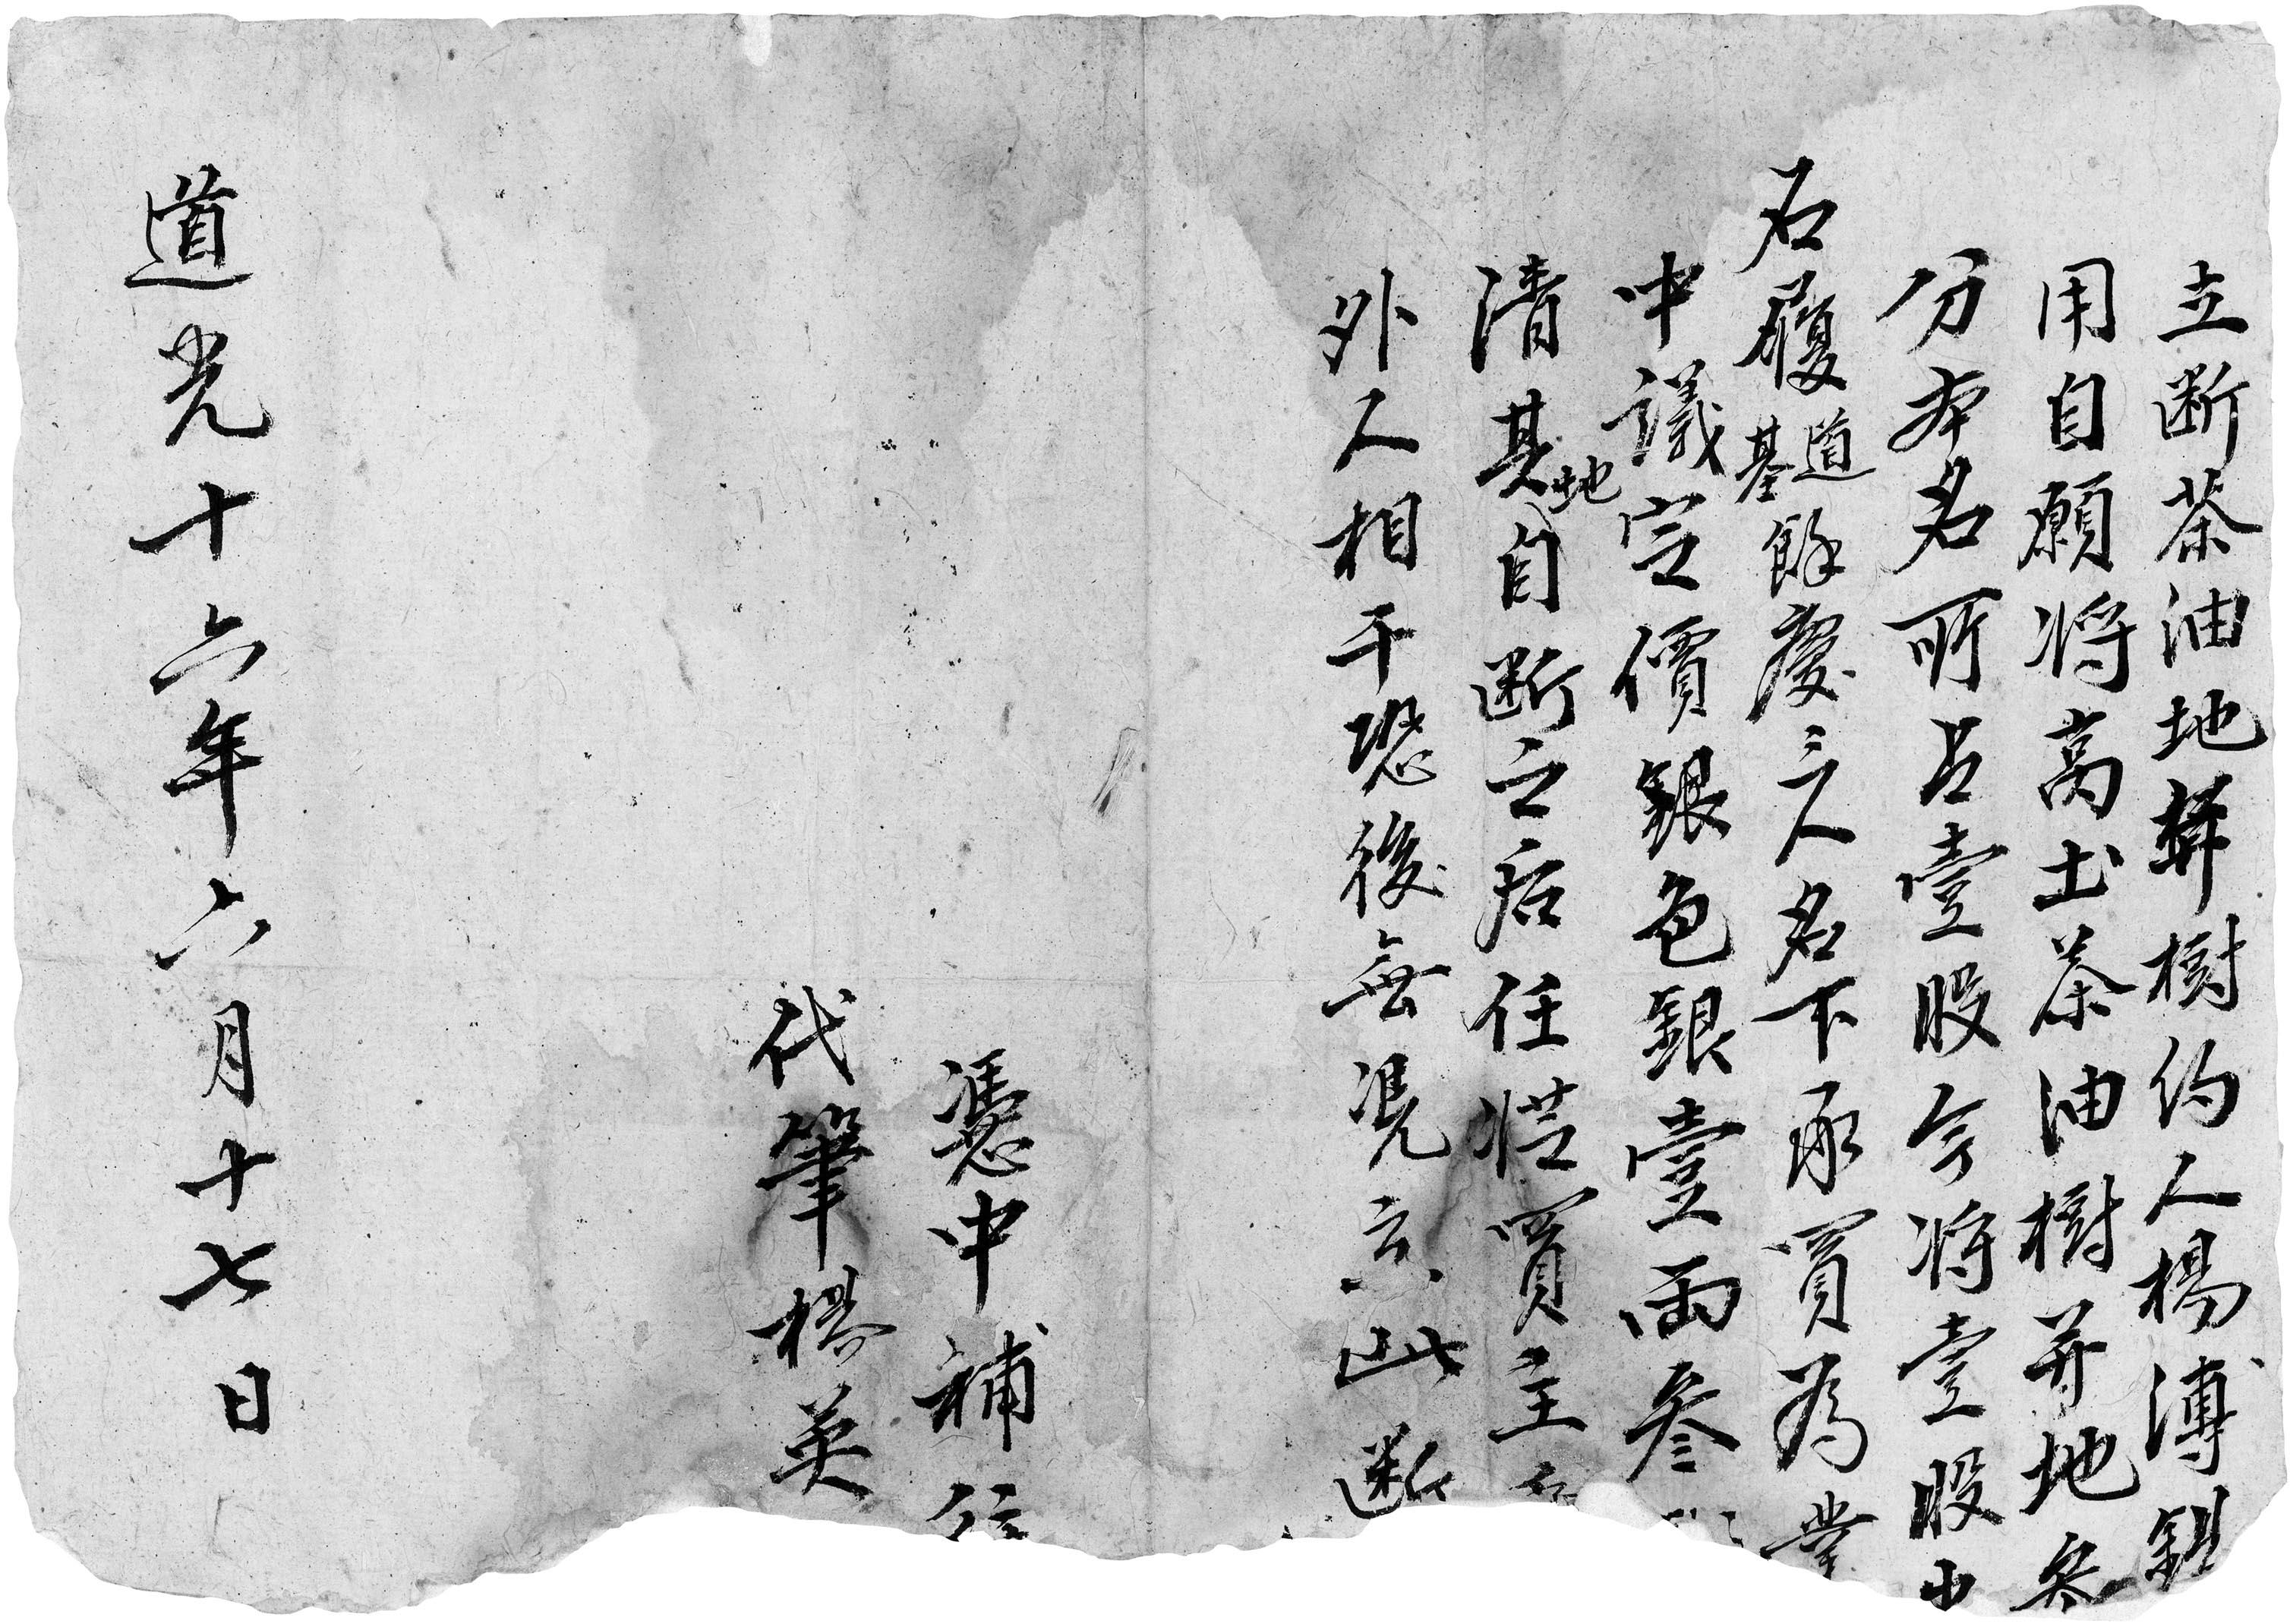 立断茶油地拼樹约人楊溥
用自願将萬土茶油樹并地叁
分本名所占壹股今将壹股出
石履道基餘慶三人名下承買為業
中議定價銀色銀壹両叁
清其地自断之后任憑買主
外人相干恐後無凴立此断
憑中補
代筆楊英
道光十六年六月十七日